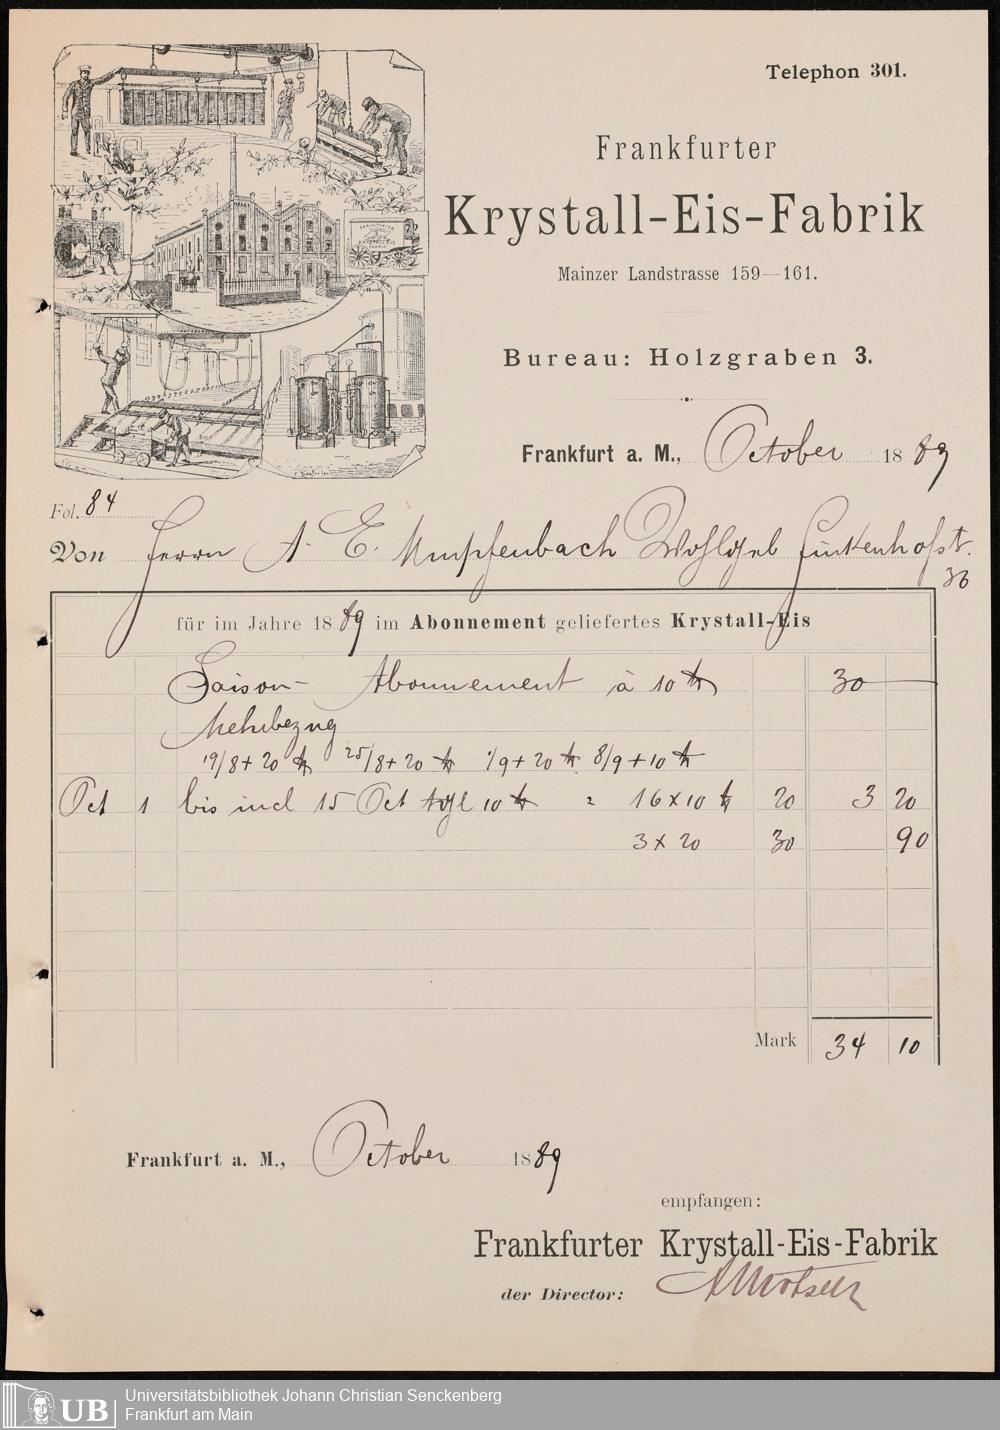 Telephon 301.
Frankfurter
Krystall-Eis-Fabrik
Mainzer Landstrasse 159—161.
Bureau: Holzgraben 3.
Frankfurt a. M., October 1889
Fol. 84
Von Herrn A. E. Umpfenbach Wohlgeb Finkenhofstr.
36
für im Jahre 1889 im Abonnement geliefertes Krystall-Eis
Saison- Abonnement à 10 ℔ 30 —
Mehrbezug
19/8 + 20 ℔ 25/8 + 20 ℔ 1/9 + 20 ℔ 8/9 + 10 ℔
Oct 1 bis incl 15 Oct tägl 10 ℔ = 16 x 10 ℔ 20 3 20
3 x 20 30 90
Mark 34 10
Frankfurt a. M., October 1889
empfangen:
Frankfurter Krystall-Eis-Fabrik
der Director:
UB
Universitätsbibliothek Johann Christian Senckenberg
Frankfurt am Main